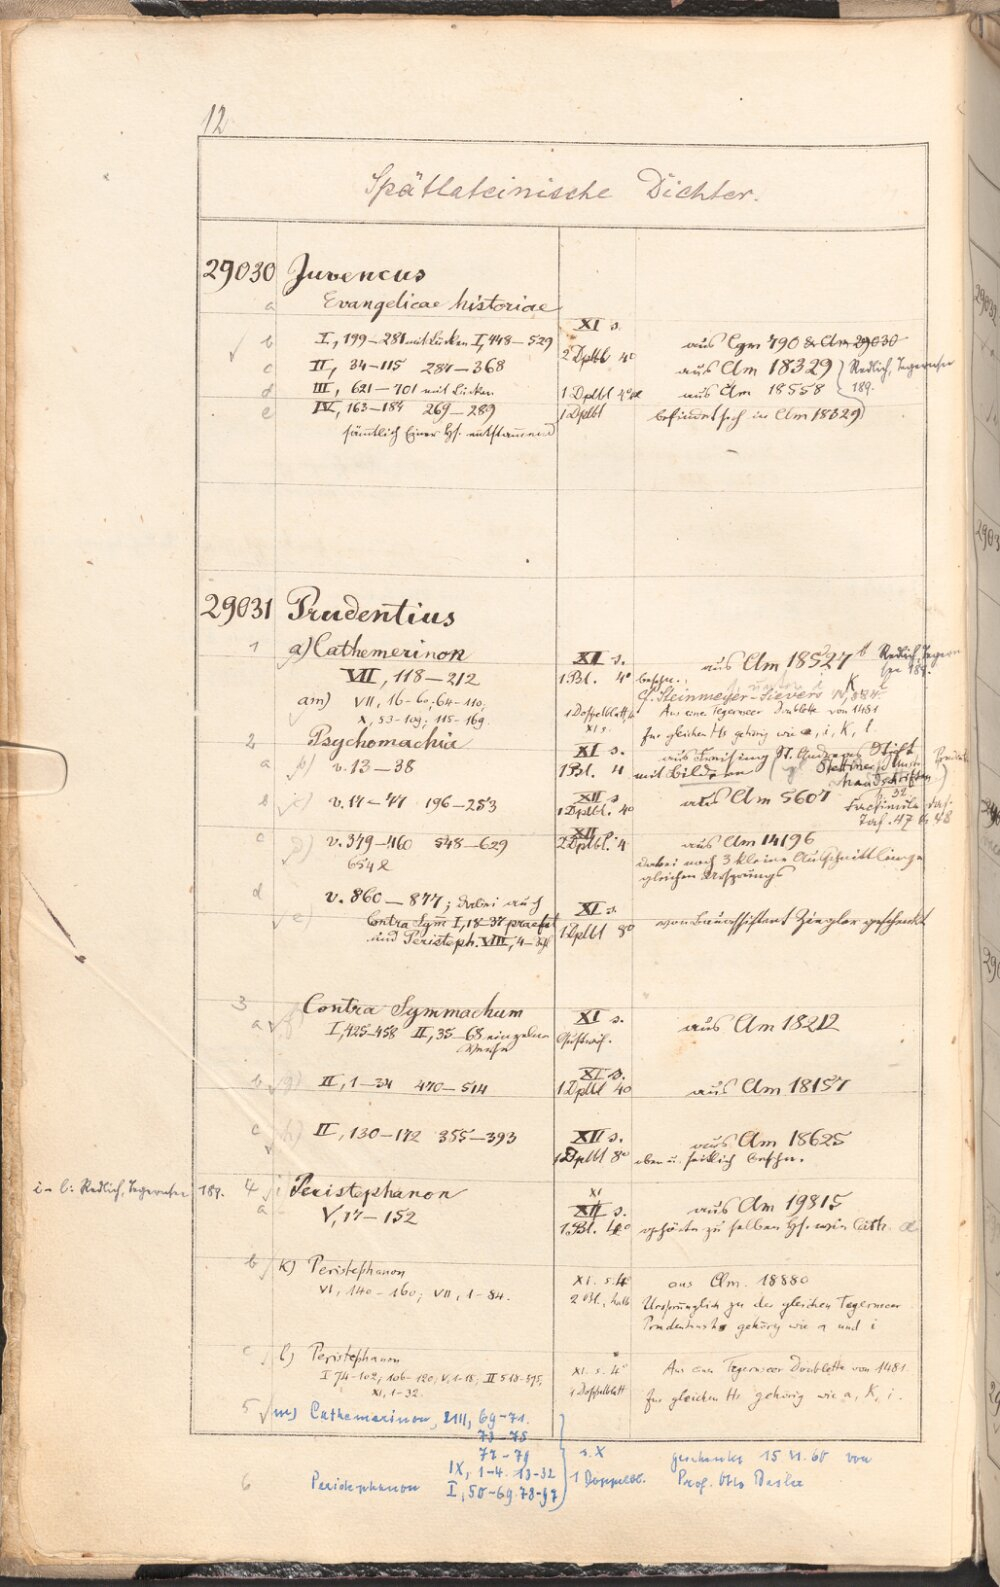 12
Spätlateinische Dichter.
29030 Juvencus
a Evangelicae historiae
XI s.
b I, 199-281 mit Lücken I, 448-529 2 Dplbl 4° aus Cgm 790 & Clm 29030
c II, 34-115 287-368 aus Clm 18329 Redlich, Tegernsee
d III, 621-701 mit Lücken 1 Dplbl 4° aus Clm 18558 189.
e IV, 163-184 269-289 1 Dplbl befindet sich in Clm 18329
sämtlich Einer Hs. entstammend
29031 Prudentius
1 a) Cathemerinon XI s. aus Clm 18527 b Redlich, Tegern
VII, 118-212 1 Bl. 4° beschn. see 189.
Cf. Steinmeyer-Sievers N 384
am) VII, 16-60; 64-110; 1 Doppelblatt Aus einer Tegernseer Doublette von 1481
X, 53-109; 115-169. XI s. zur gleichen Hs gehörig wie a, i, K, l.
2 Psychomachia XI s. aus Freising St. Andreas Stift
a b) v. 13-38 1 Bl. 4 mit Bildern Stettiner
Handschriften
XII s.
b c) v. 17-47 196-253 1 Dplbl. 4° aus Clm 5607
Facsimile
Taf. 47 & 48
XII
c v. 379-460 548-629 2 Dplbl. 4 aus Clm 14196
654 dabei noch 3 kleine Ausschnittlinge
gleichen Ursprungs
d v. 860-877; dabei auch XI s.
e) Contra Sym I, 18-37 praefat 1 Dplbl 8° von Bauassistent Ziegler geschenkt
und Peristeph. VIII, 4-
3 Contra Symmachum XI s. aus Clm 18212
a I, 425-458 II, 35-68 einzelne
Verse
XI s.
b g) II, 1-34 470-514 1 Dplbl 4° aus Clm 18157
c h) II, 130-172 355-393 XII s. aus Clm 18625
1 Dplbl 8° oben u. seitlich beschn.
i-l: Redlich, Tegernsee 189. 4 i Peristephanon XI XII s. aus Clm 19815
a V, 17-152 1 Bl. 4° gehörte zu selben Hs. wie Cath. a
b K) Peristephanon XI. s. 4° aus Clm. 18880
VI, 140-160; VII, 1-84. 2 Bl., halb Ursprünglich zu der gleichen Tegernseer
Prudentiushs gehörig wie a und i
c l) Peristephanon XI. s. 4° Aus einer Tegernseer Doublette von 1481.
I 74-102; 106-120; V, 1-18; II 518-575; 1 Doppelblatt Zur gleichen Hs gehörig wie a, K, i.
XI, 1-32.
5 m) Cathemerinon, VIII, 69-71.
73-75
77-79 s. X geschenkt 15 XI. 60 von
IX, 1-4. 13-32 1 Doppelbl. Prof. Otto Basler
6 Peristephanon I, 50-69. 78-97